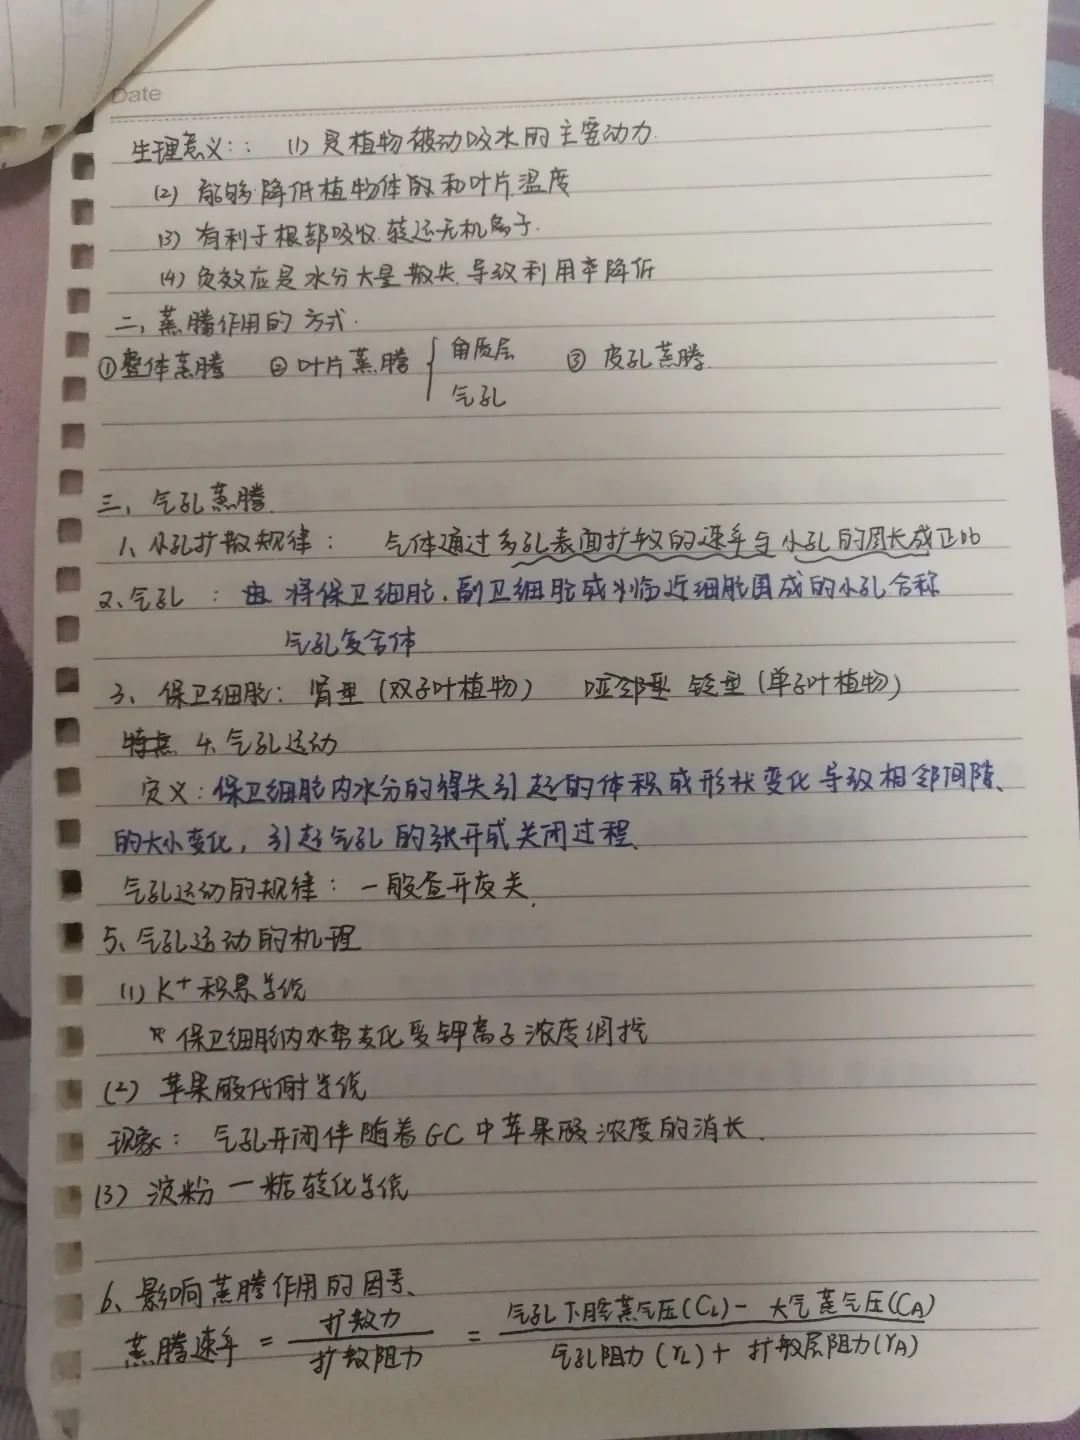 Date
生理意义:: (1) 是植物被动吸水的主要动力.
(2) 能够降低植物体的和叶片温度
(3) 有利于根部吸收.转运无机离子.
(4) 负效应是水分大量散失.导致利用率降低
二、蒸腾作用的方式.
①整体蒸腾 ②叶片蒸腾 { 角质层 ③ 皮孔蒸腾.
气孔
三、气孔蒸腾.
1、小孔扩散规律: 气体通过多孔表面扩散的速率与小孔的周长成正比
2、气孔: 将保卫细胞、副卫细胞或临近细胞围成的小孔合称
气孔复合体
3、保卫细胞: 肾型 (双子叶植物) 哑铃型 (单子叶植物)
4、气孔运动
定义: 保卫细胞内水分的得失引起的体积或形状变化导致相邻间隙、
的大小变化, 引起气孔的张开或关闭过程.
气孔运动的规律: 一般昼开夜关.
5、气孔运动的机理
(1) K⁺积累学说
保卫细胞内水势变化受钾离子浓度调控
(2) 苹果酸代谢学说
现象: 气孔开闭伴随着GC中苹果酸浓度的消长.
(3) 淀粉—糖转化学说
6、影响蒸腾作用的因素、
蒸腾速率 = 扩散力/扩散阻力 = 气孔下腔蒸气压(CL) - 大气蒸气压(CA)/气孔阻力(rL) + 扩散层阻力(rA)